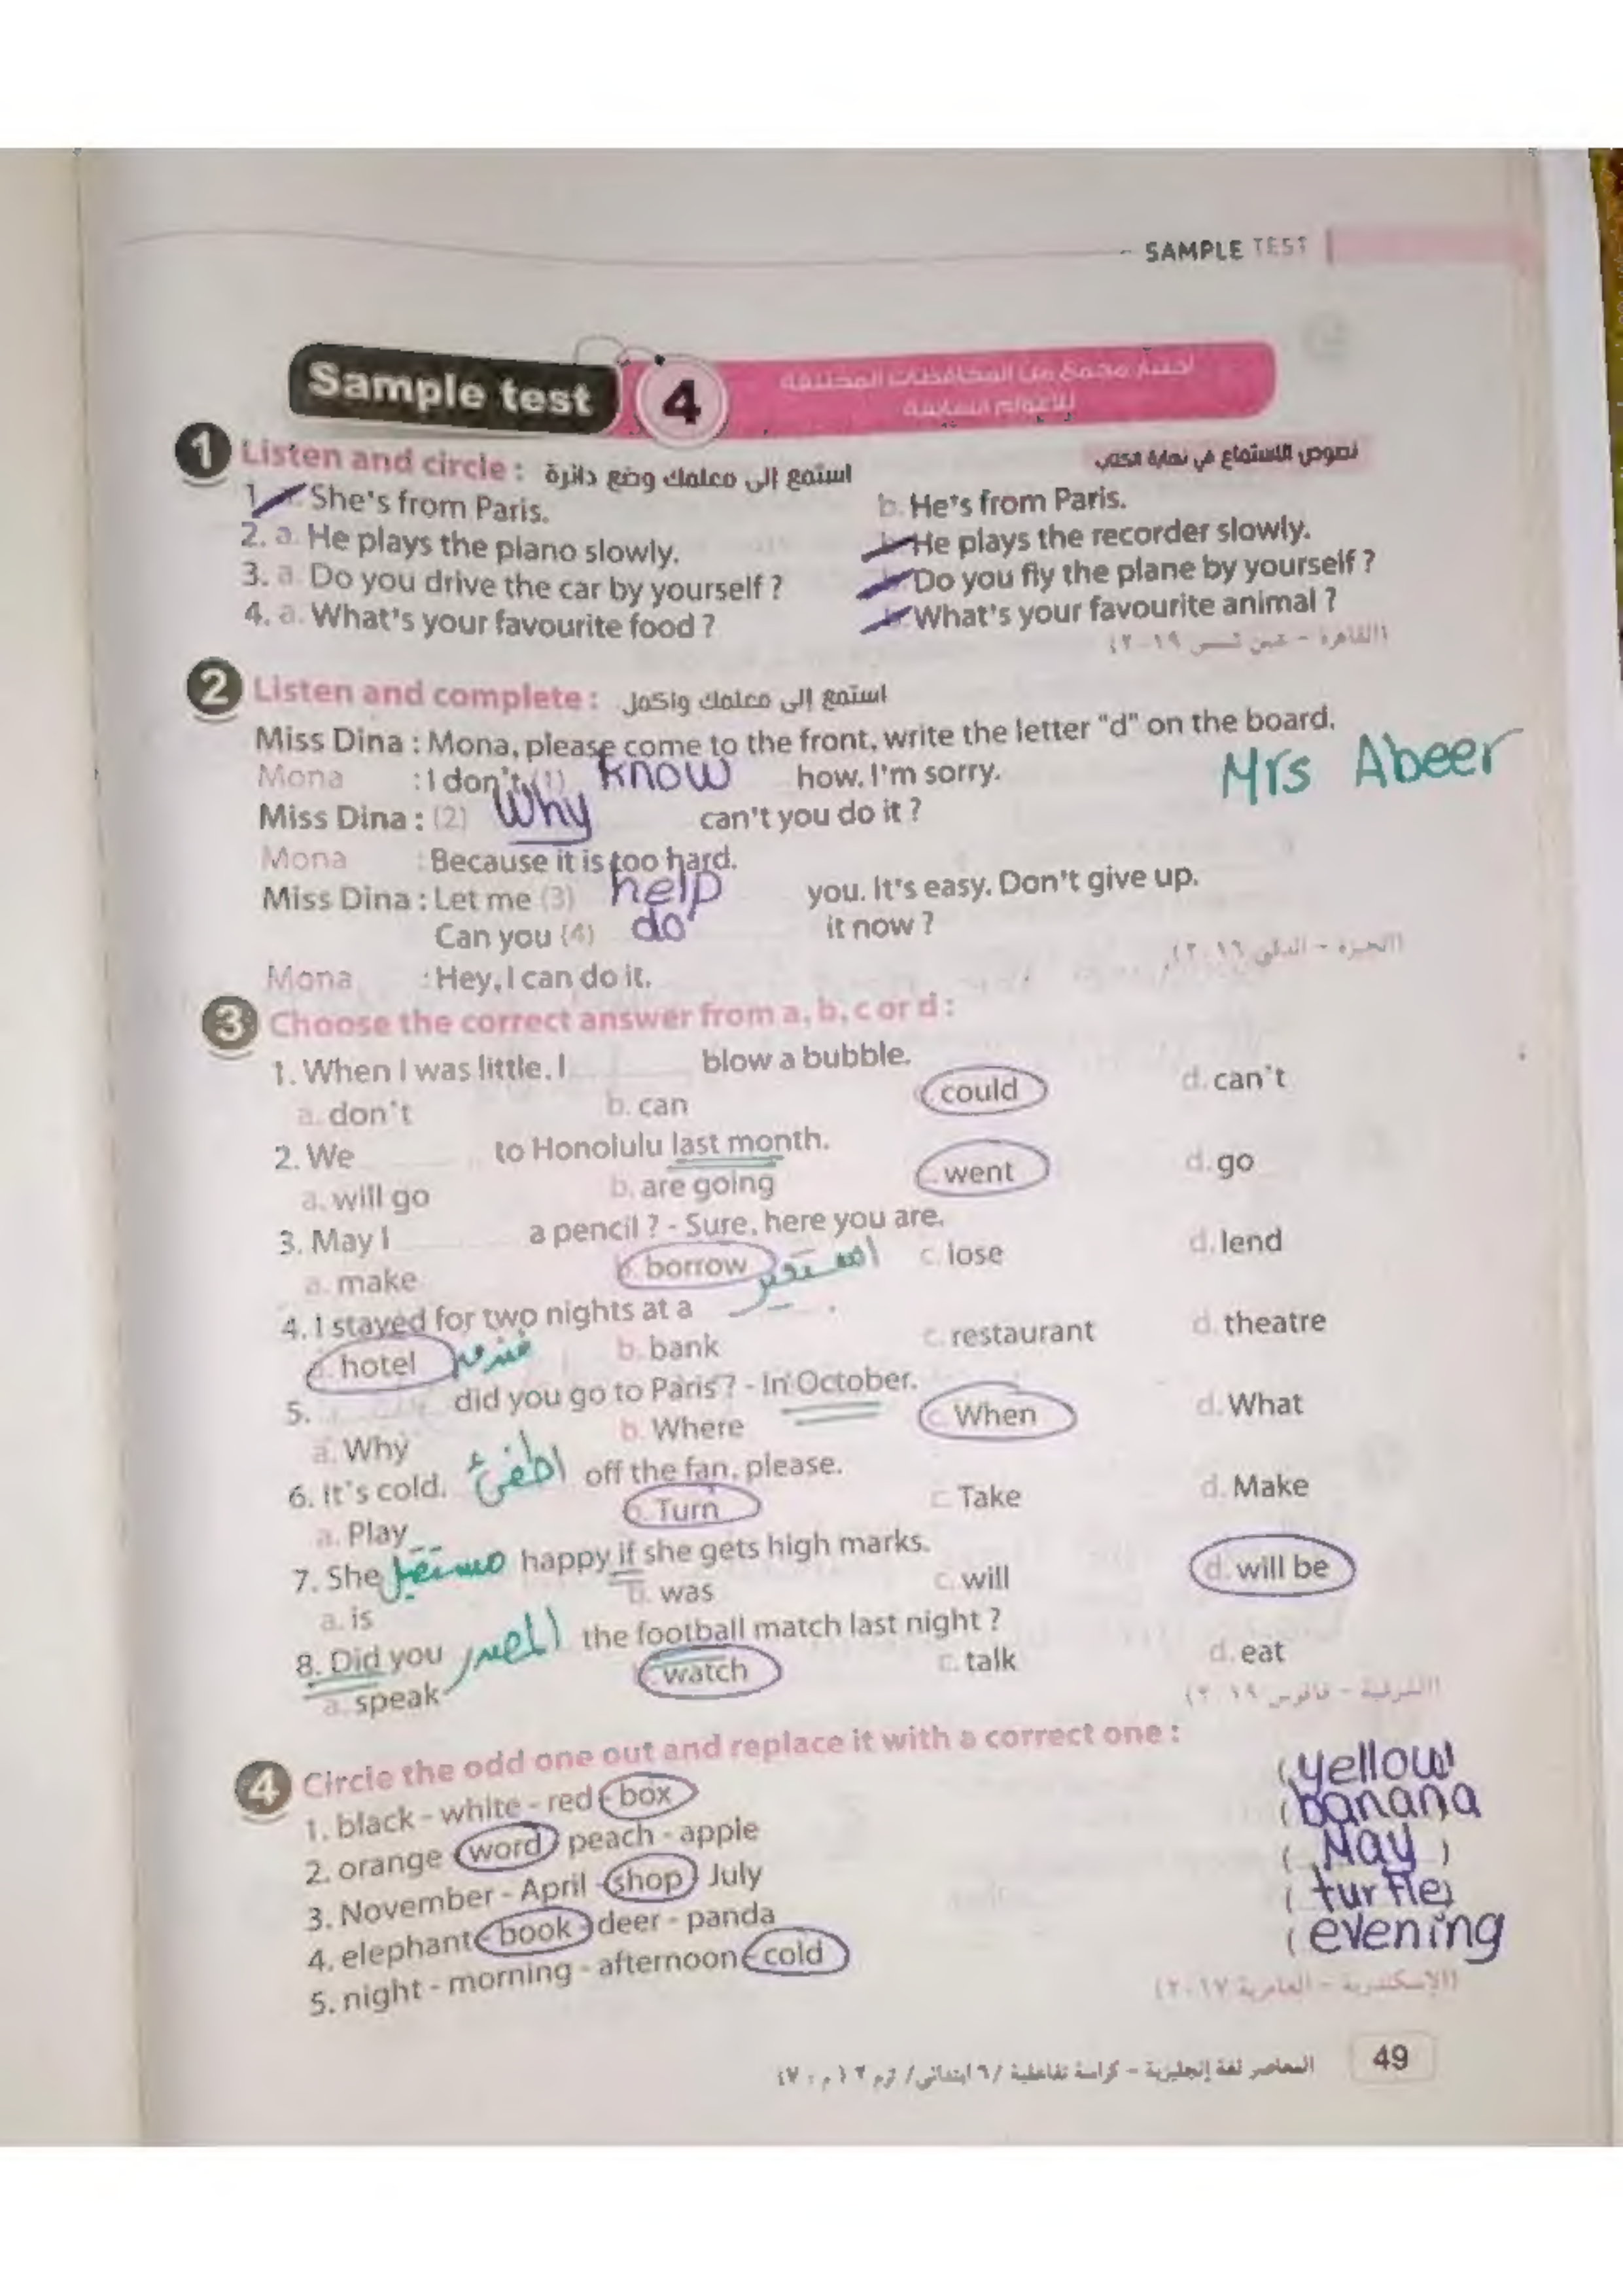 SAMPLE TEST
Sample test 4
اختبار مجمع من المحافظات المختلفة
للأعوام السابقة
1 Listen and circle : استمع إلى معلمك وضع دائرة
نصوص الاستماع في نهاية الكتاب
1. She's from Paris. b. He's from Paris.
2. a. He plays the piano slowly. He plays the recorder slowly.
3. a. Do you drive the car by yourself ? Do you fly the plane by yourself ?
4. a. What's your favourite food ? b. What's your favourite animal ?
(القاهرة - عين شمس ٢٠١٩)
2 Listen and complete : استمع إلى معلمك واكمل
Miss Dina : Mona, please come to the front, write the letter "d" on the board.
Mona : I don't (1) know how. I'm sorry.
Mrs Abeer
Miss Dina : (2) Why can't you do it ?
Mona : Because it is too hard.
Miss Dina : Let me (3) help you. It's easy. Don't give up.
Can you (4) do it now ?
(الجيزة - الدقي ٢٠١٦)
Mona : Hey, I can do it.
3 Choose the correct answer from a, b, c or d :
1. When I was little, I blow a bubble.
a. don't b. can could d. can't
2. We to Honolulu last month.
a. will go b. are going went d. go
3. May I a pencil ? - Sure, here you are.
a. make b. borrow استعير c. lose d. lend
4. I stayed for two nights at a .
a. hotel فندق b. bank c. restaurant d. theatre
5. did you go to Paris ? - In October.
a. Why b. Where c. When d. What
6. It's cold. اطفئ off the fan, please.
a. Play b. Turn c. Take d. Make
7. She مستقبل happy if she gets high marks.
a. is b. was c. will d. will be
8. Did you المصدر the football match last night ?
a. speak watch c. talk d. eat
(الشرقية - فاقوس ٢٠١٩)
4 Circle the odd one out and replace it with a correct one :
1. black - white - red - box ( yellow
2. orange word peach - apple ( banana
3. November - April - shop July ( May )
4. elephant - book - deer - panda ( turtle )
5. night - morning - afternoon - cold ( evening
(الإسكندرية - العامرية ٢٠١٧)
المعاصر لغة إنجليزية - كراسة تفاعلية / ٦ ابتدائي / ترم ٢ (م : ٧) 49